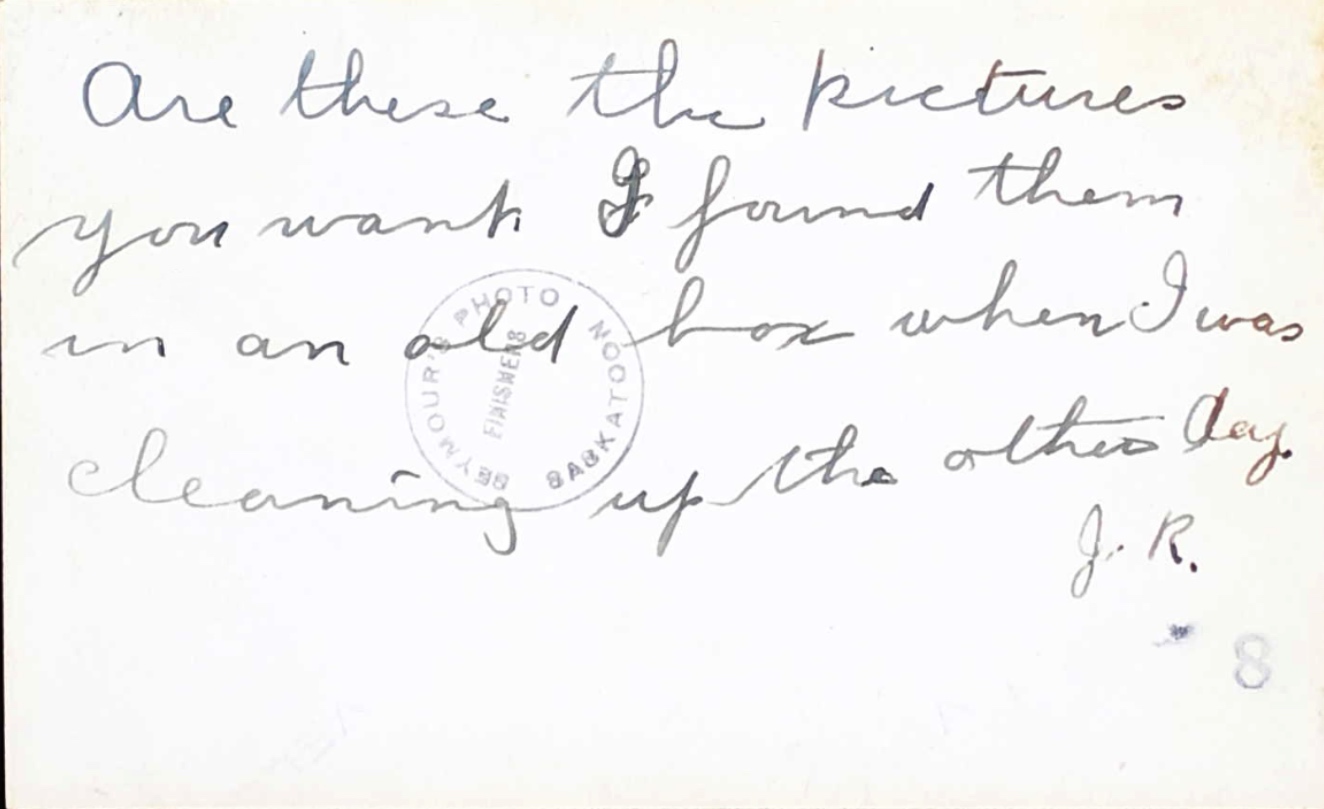 Are these the pictures
you want I found them
in an old box when I was
cleaning up the other day.
J. R.
SEYMOUR'S PHOTO
FINISHERS
SASKATOON
8